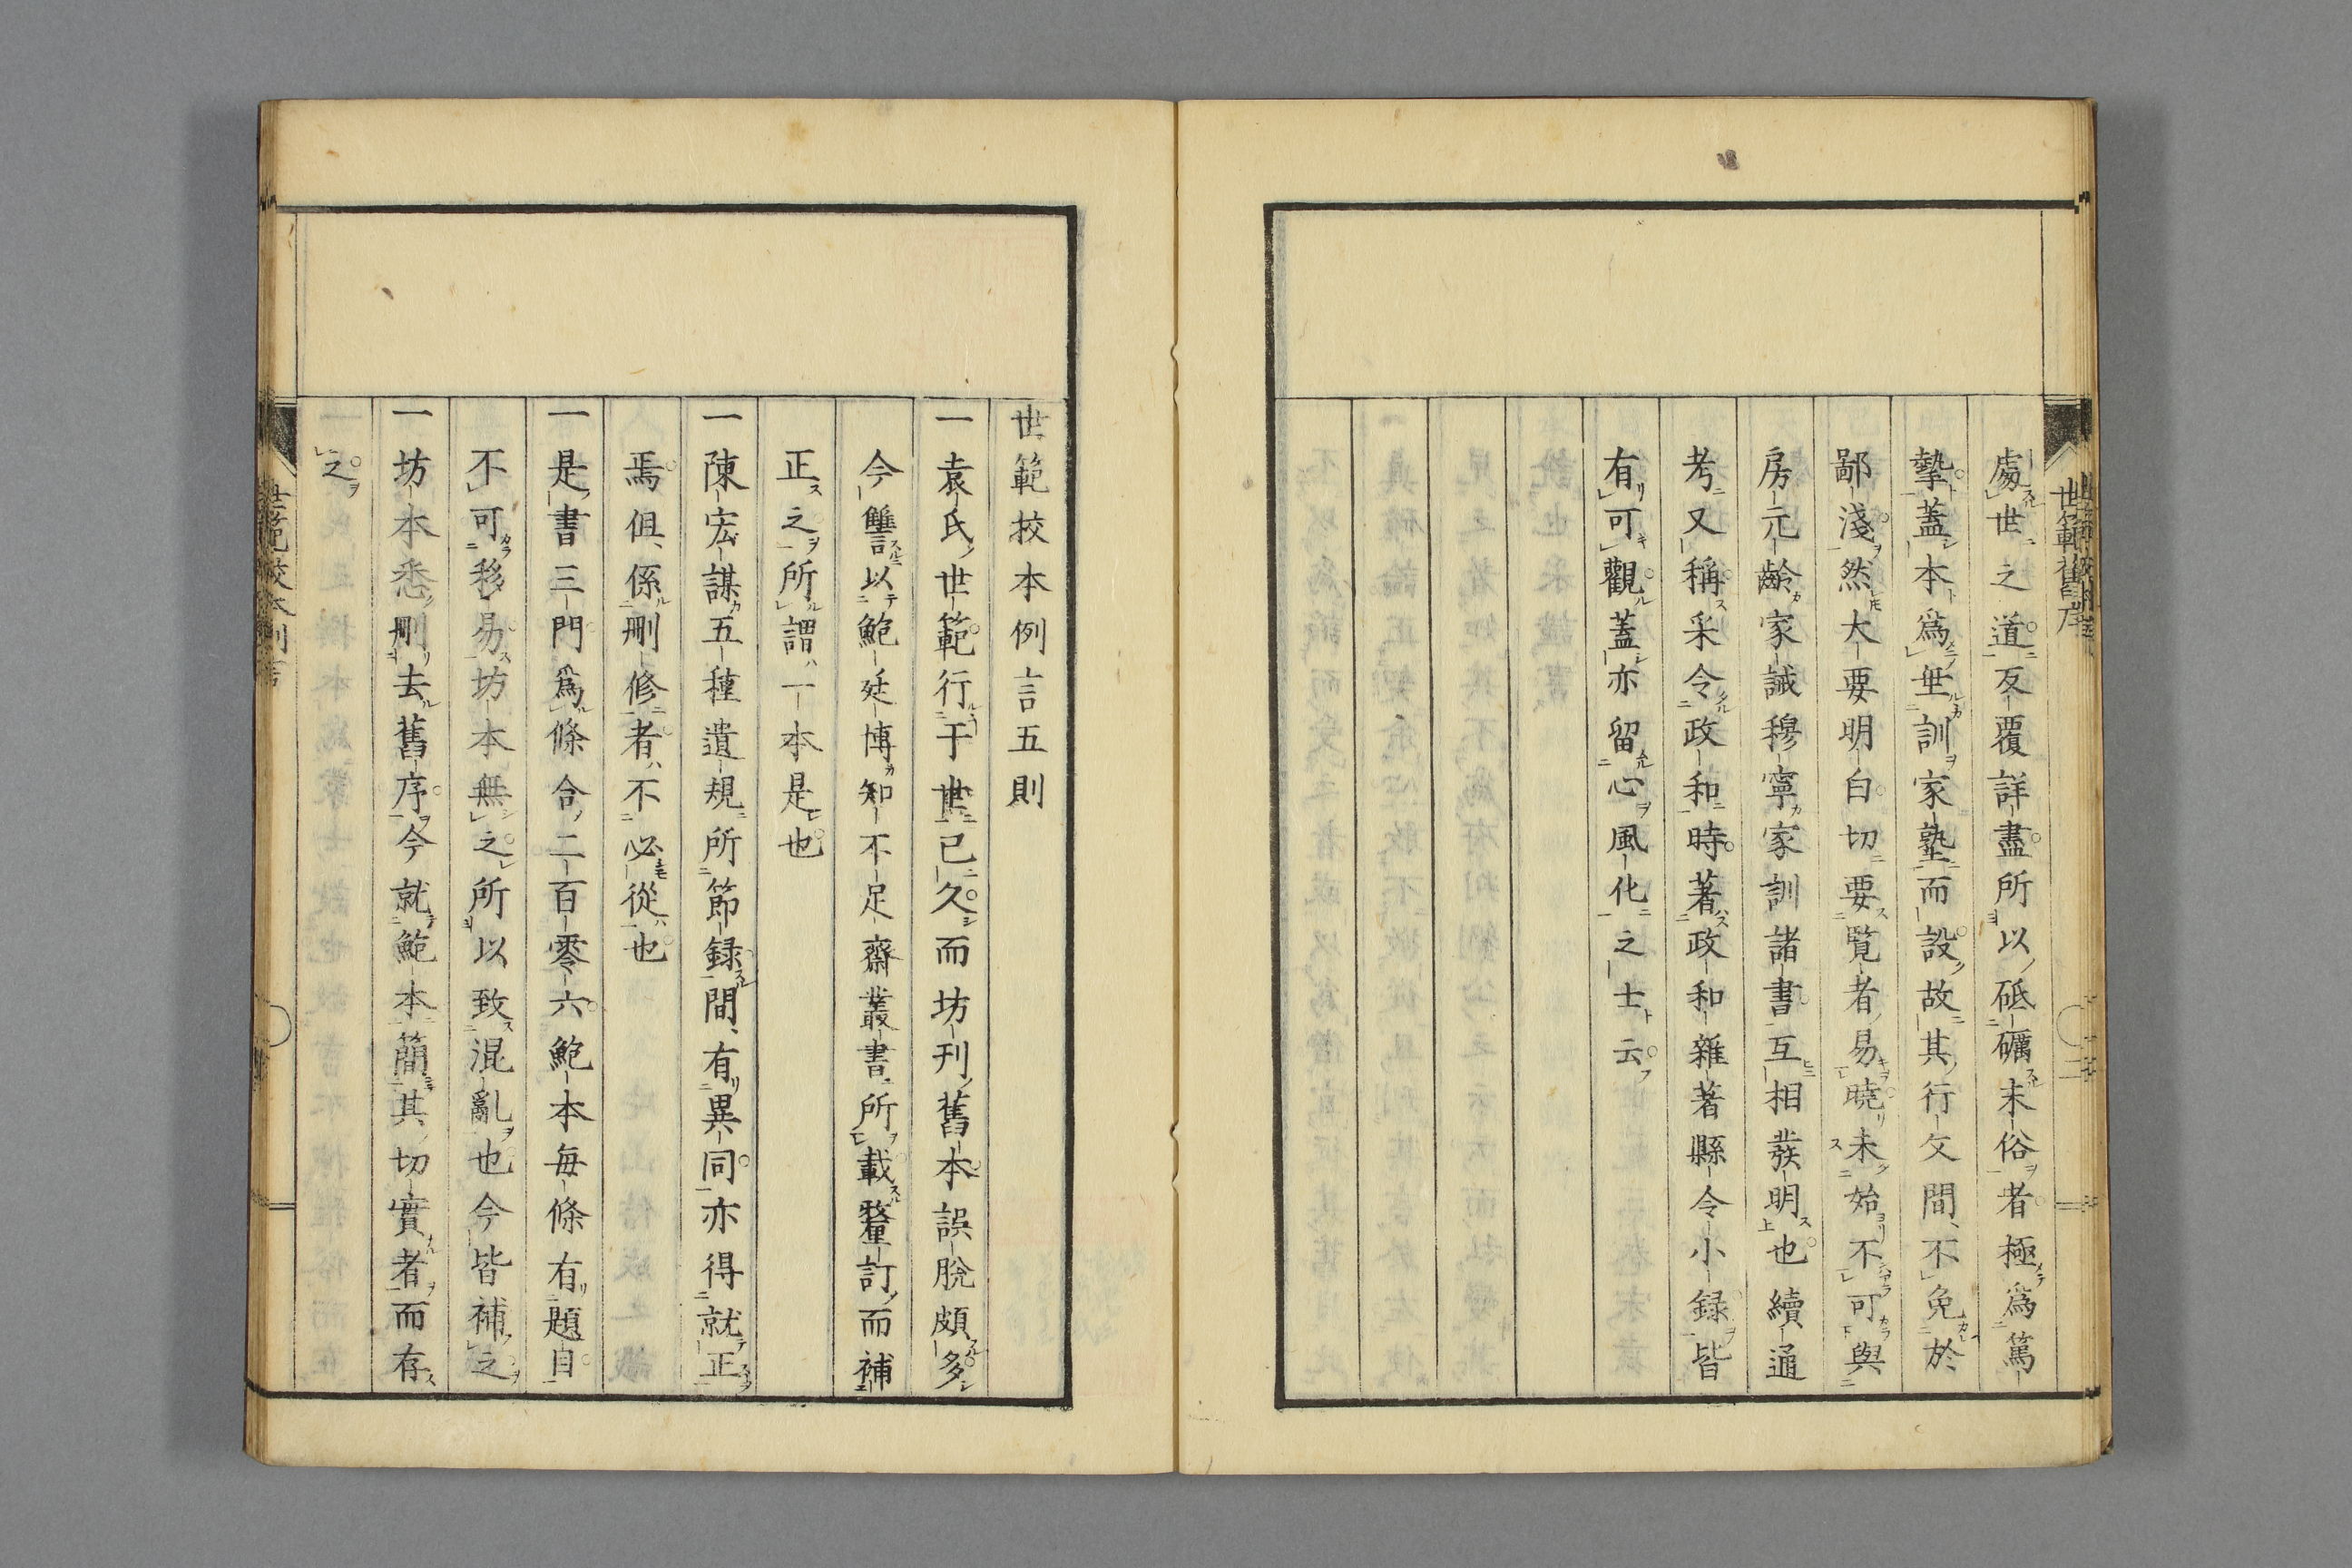 處世之道反覆詳盡所以砥礪末俗者極爲篤
摯蓋本爲垂訓家塾而設故其行文間不免於
鄙淺然大要明白切要覽者易曉未始不可與
房元齡家誡穆寧家訓諸書互相發明也續通
考又稱采令政和時著政和雜著縣令小録皆
有可觀蓋亦留心風化之士云
世範挍本例言五則
一袁氏世範行于世已久而坊刊舊本誤脫頗多
今讐以鮑廷博知不足齋叢書所載釐訂而補
正之所謂一本是也
一陳宏謀五種遺規所節録間有異同亦得就正
焉但係刪修者不必從也
一是書三門爲條合二百零六鮑本每條有題目
不可移易坊本無之所以致混亂也今皆補之
一坊本悉刪去舊序今就鮑本簡其切實者而存
之